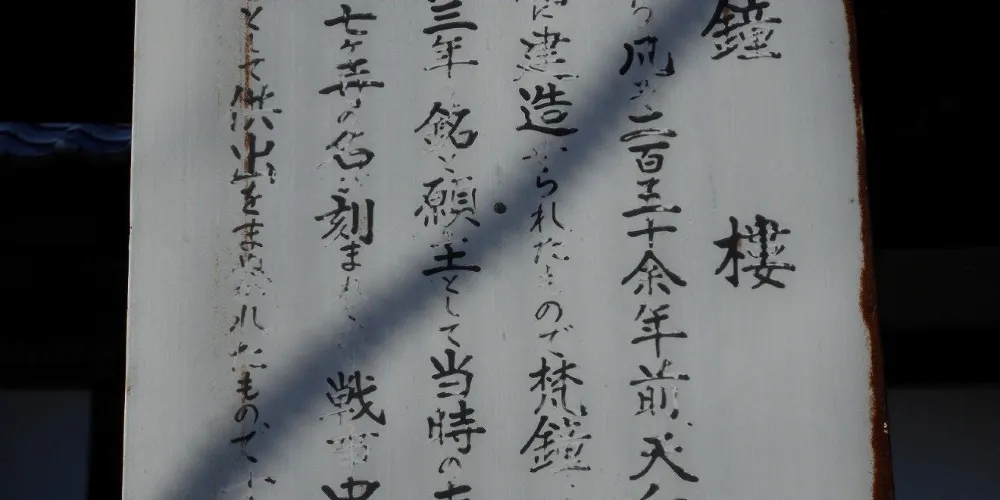 鐘樓
ら凡そ二百五十余年前
に建造せられたもので梵鐘
三年 銘に願主として当時の
七ヶ寺の名が刻まれ、戦時中
として供出をまぬがれたもので